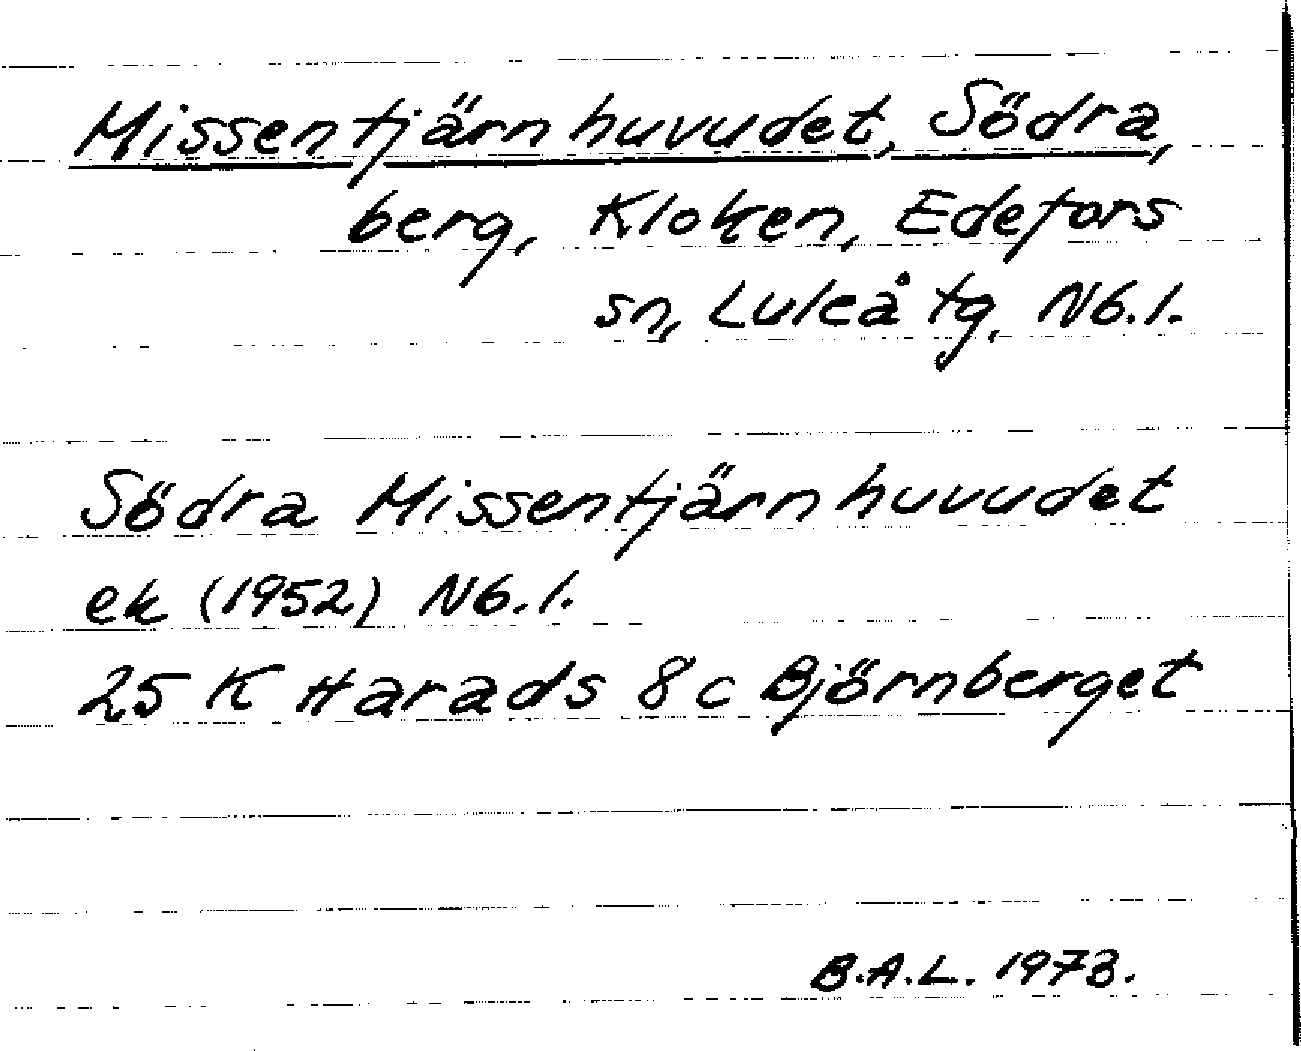 Missentjärnhuvudet, Södra,
berg, Kloken, Edefors
sn, Luleå tg, Nb. l.
Södra Missentjärnhuvudet
ek (1952) Nb. l.
25 K Harads 8 c Björnberget
B.A.L. 1973.